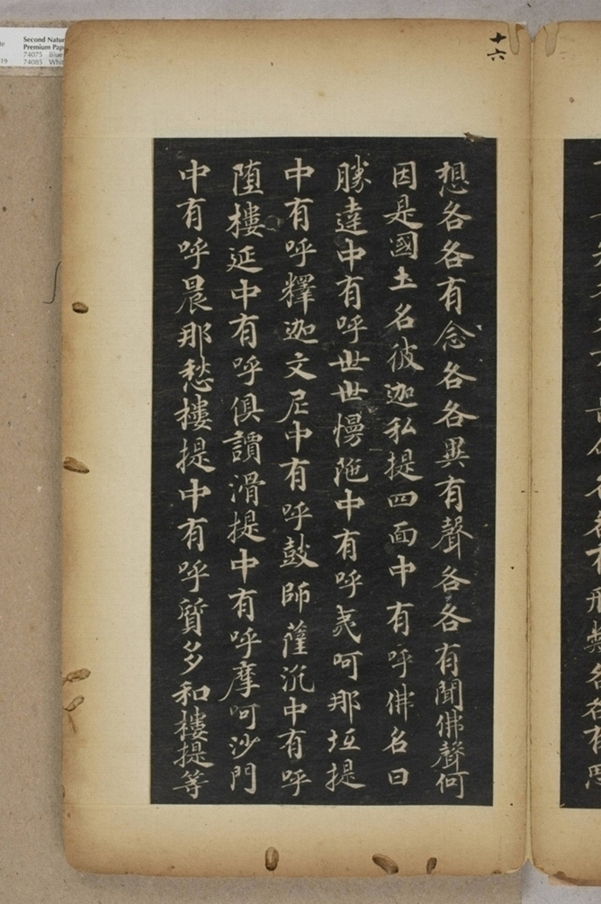 十六
想各各有念各各異有聲各各有聞佛聲何
因是國土名彼迦私提四面中有呼佛名曰
勝達中有呼世世慢陁中有呼夷呵那坻提
中有呼釋迦文尼中有呼鼓師薩沉中有呼
墮樓延中有呼俱讀滑提中有呼摩呵沙門
中有呼晨那愁樓提中有呼質多和樓提等
Second Natu
Premium Pap
74075
74085